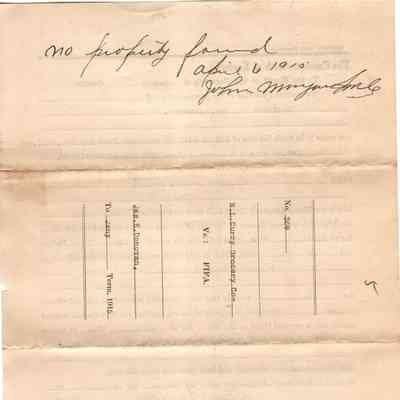 no property found
April 6 1915
John Morgan
No. 368
H.L.Curry Grocery Co.
Vs: FIFA.
Jas.E.Donovan.
To Term, 1915